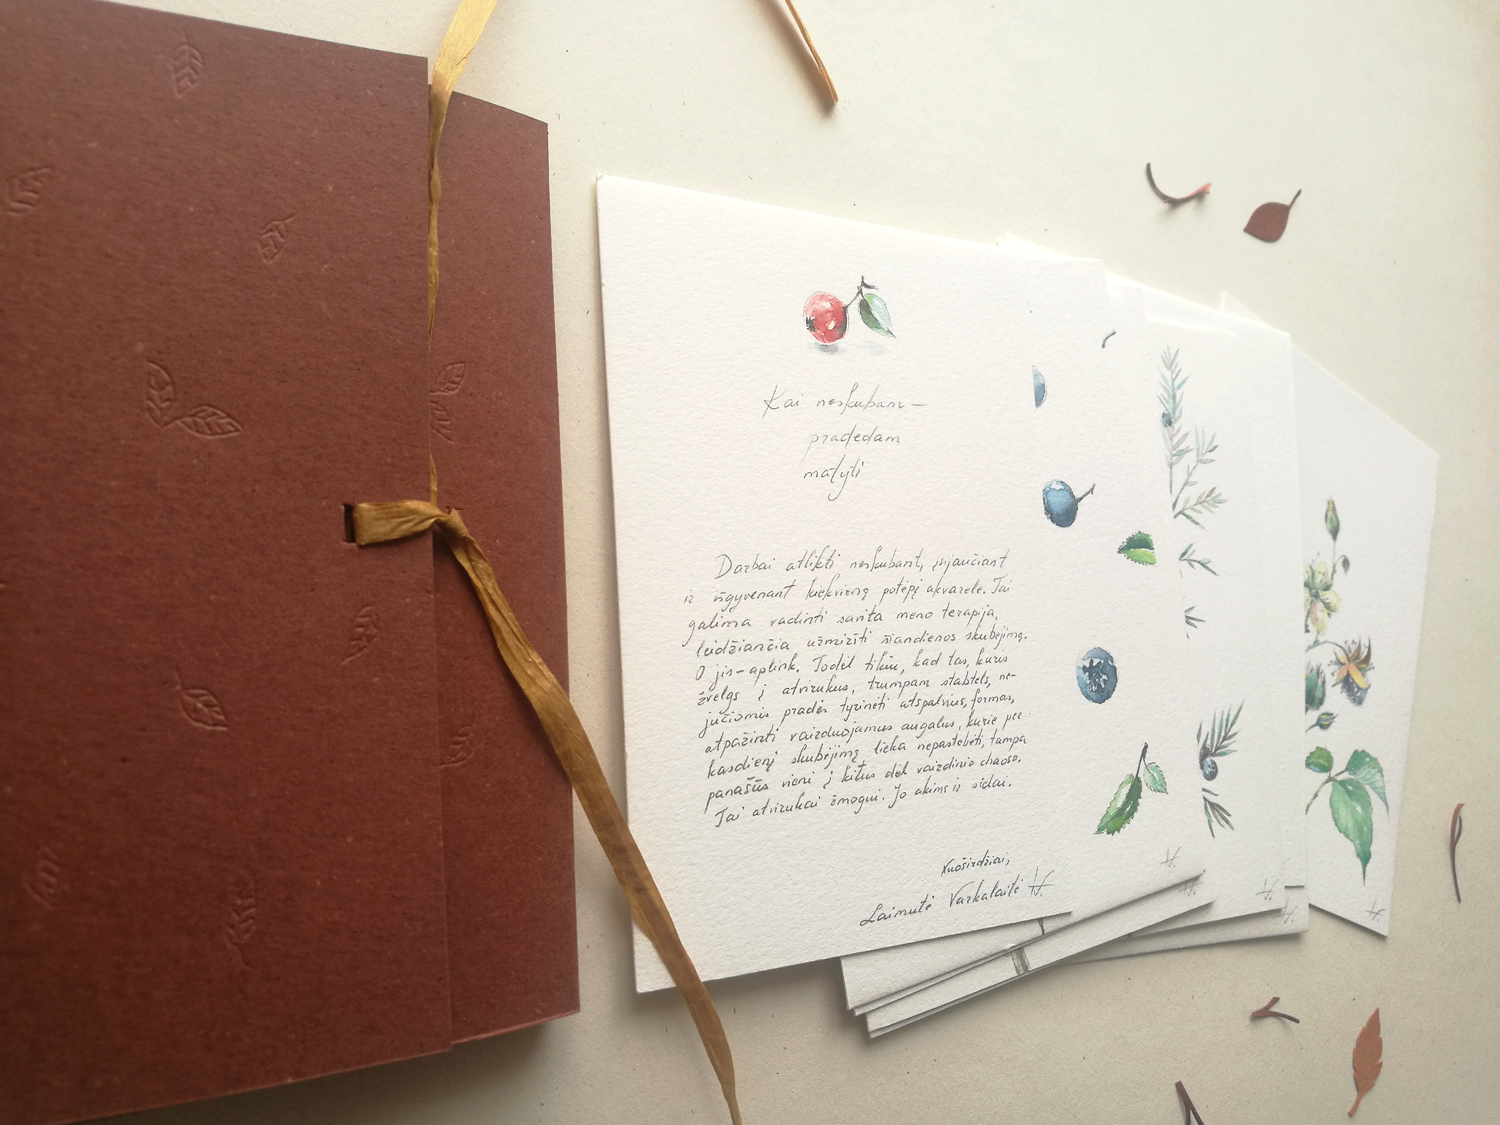 Kai neskubam—
pradedam
matyti
Darbai atlikti neskubant, įsijaučiant
ir išgyvenant kiekvieną potėpį akvarele. Tai
galima vadinti savita meno terapija,
leidžiančia užmiršti šiandienos skubėjimą.
O jis–aplink. Todėl tikiu, kad tas, kuris
žvelgs į atvirukus, trumpam stabtels, ne-
jučiomis pradės tyrinėti atspalvius, formas,
atpažinti vaizduojamus augalus, kurie per
kasdienį skubėjimą lieka nepastebėti, tampa
panašūs vieni į kitus dėl vaizdinio chaoso.
Tai atvirukai žmogui. Jo akims ir sielai.
Nuoširdžiai,
Laimutė Varkalaitė